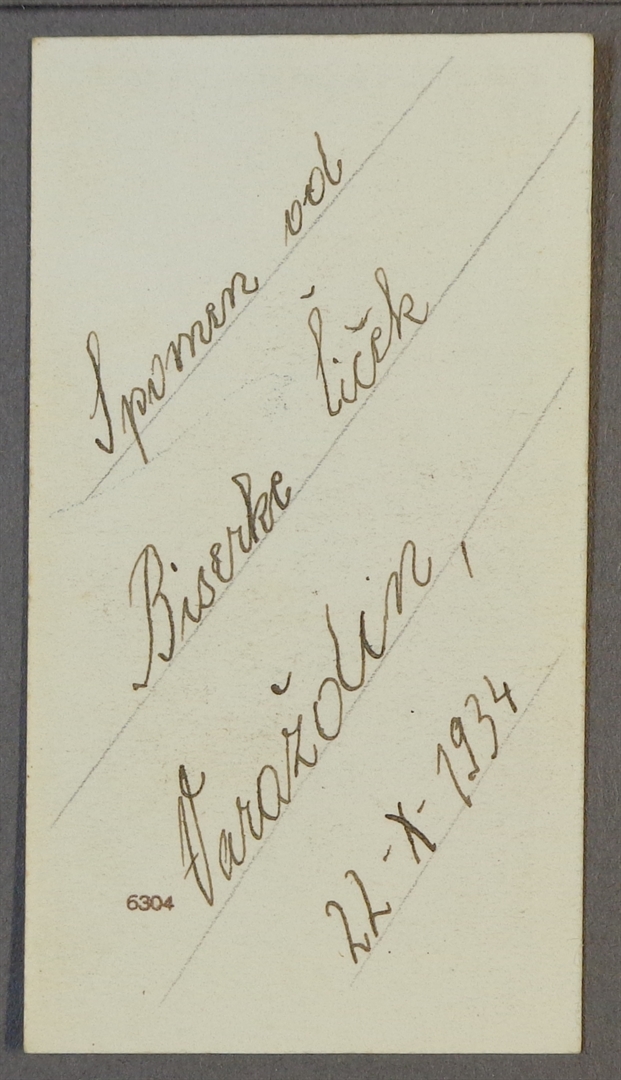 Spomen od
Biserke Čiček
Varaždin,
22-X-1934
6304